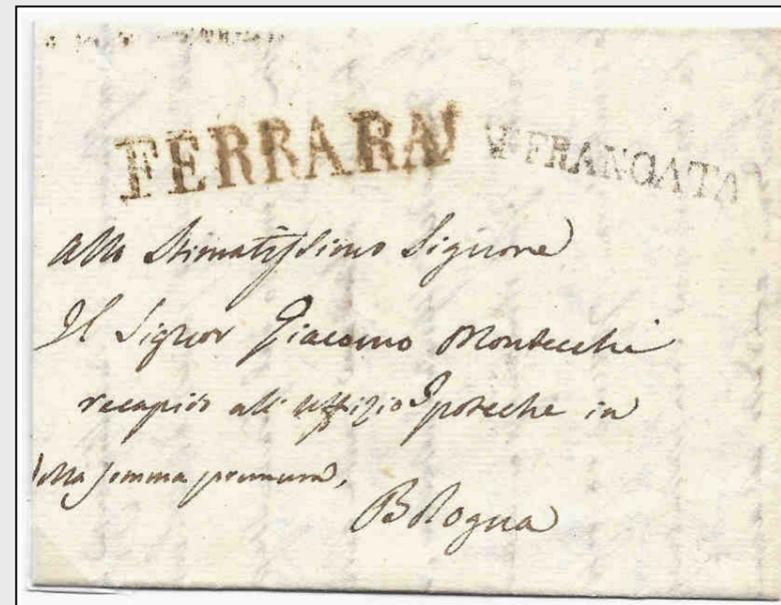 FERRARA
FRANCATA
Allo Stimatissimo Signore
Il Signor Giacomo Montecchi
recapito all' Uffizio Ipoteche in
somma premura,
Bologna